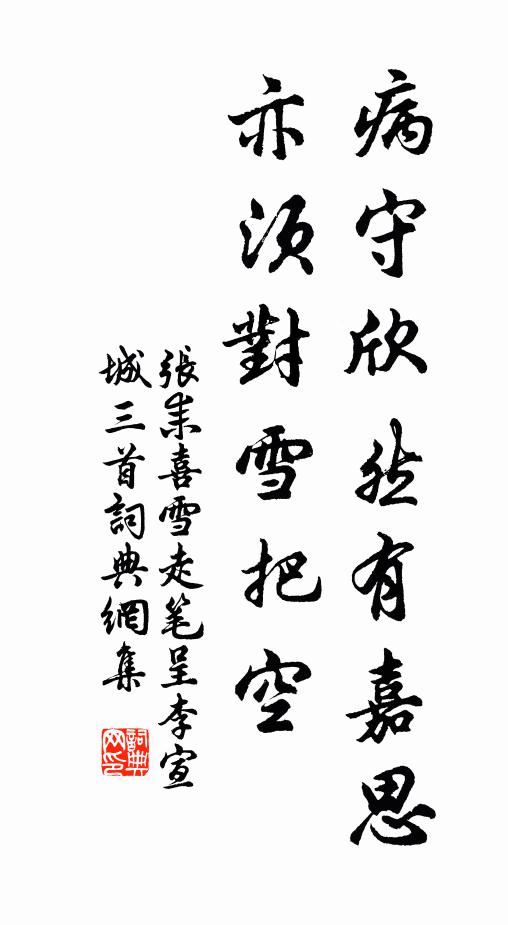 病守欣然有嘉思
亦須對雪把空
張耒喜雪走笔呈李宣
城三首詞典網集
詞典
网印